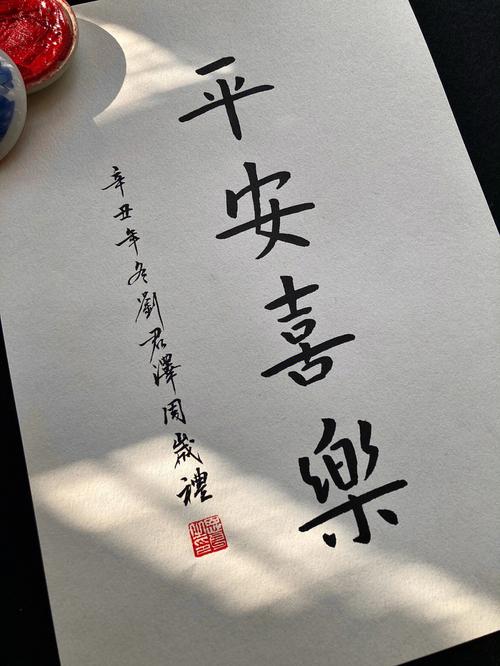 平安喜樂
辛丑年冬劉君澤周歲禮